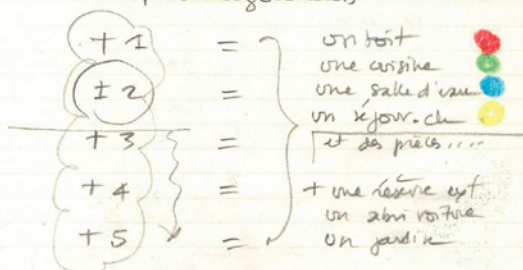 + 1 = un toit
une cuisine
± 2 = une salle d'eau
un séjour. ch
+ 3 = et des pièces....
+ 4 = + une réserve ext
un abri voiture
+ 5 = un jardin